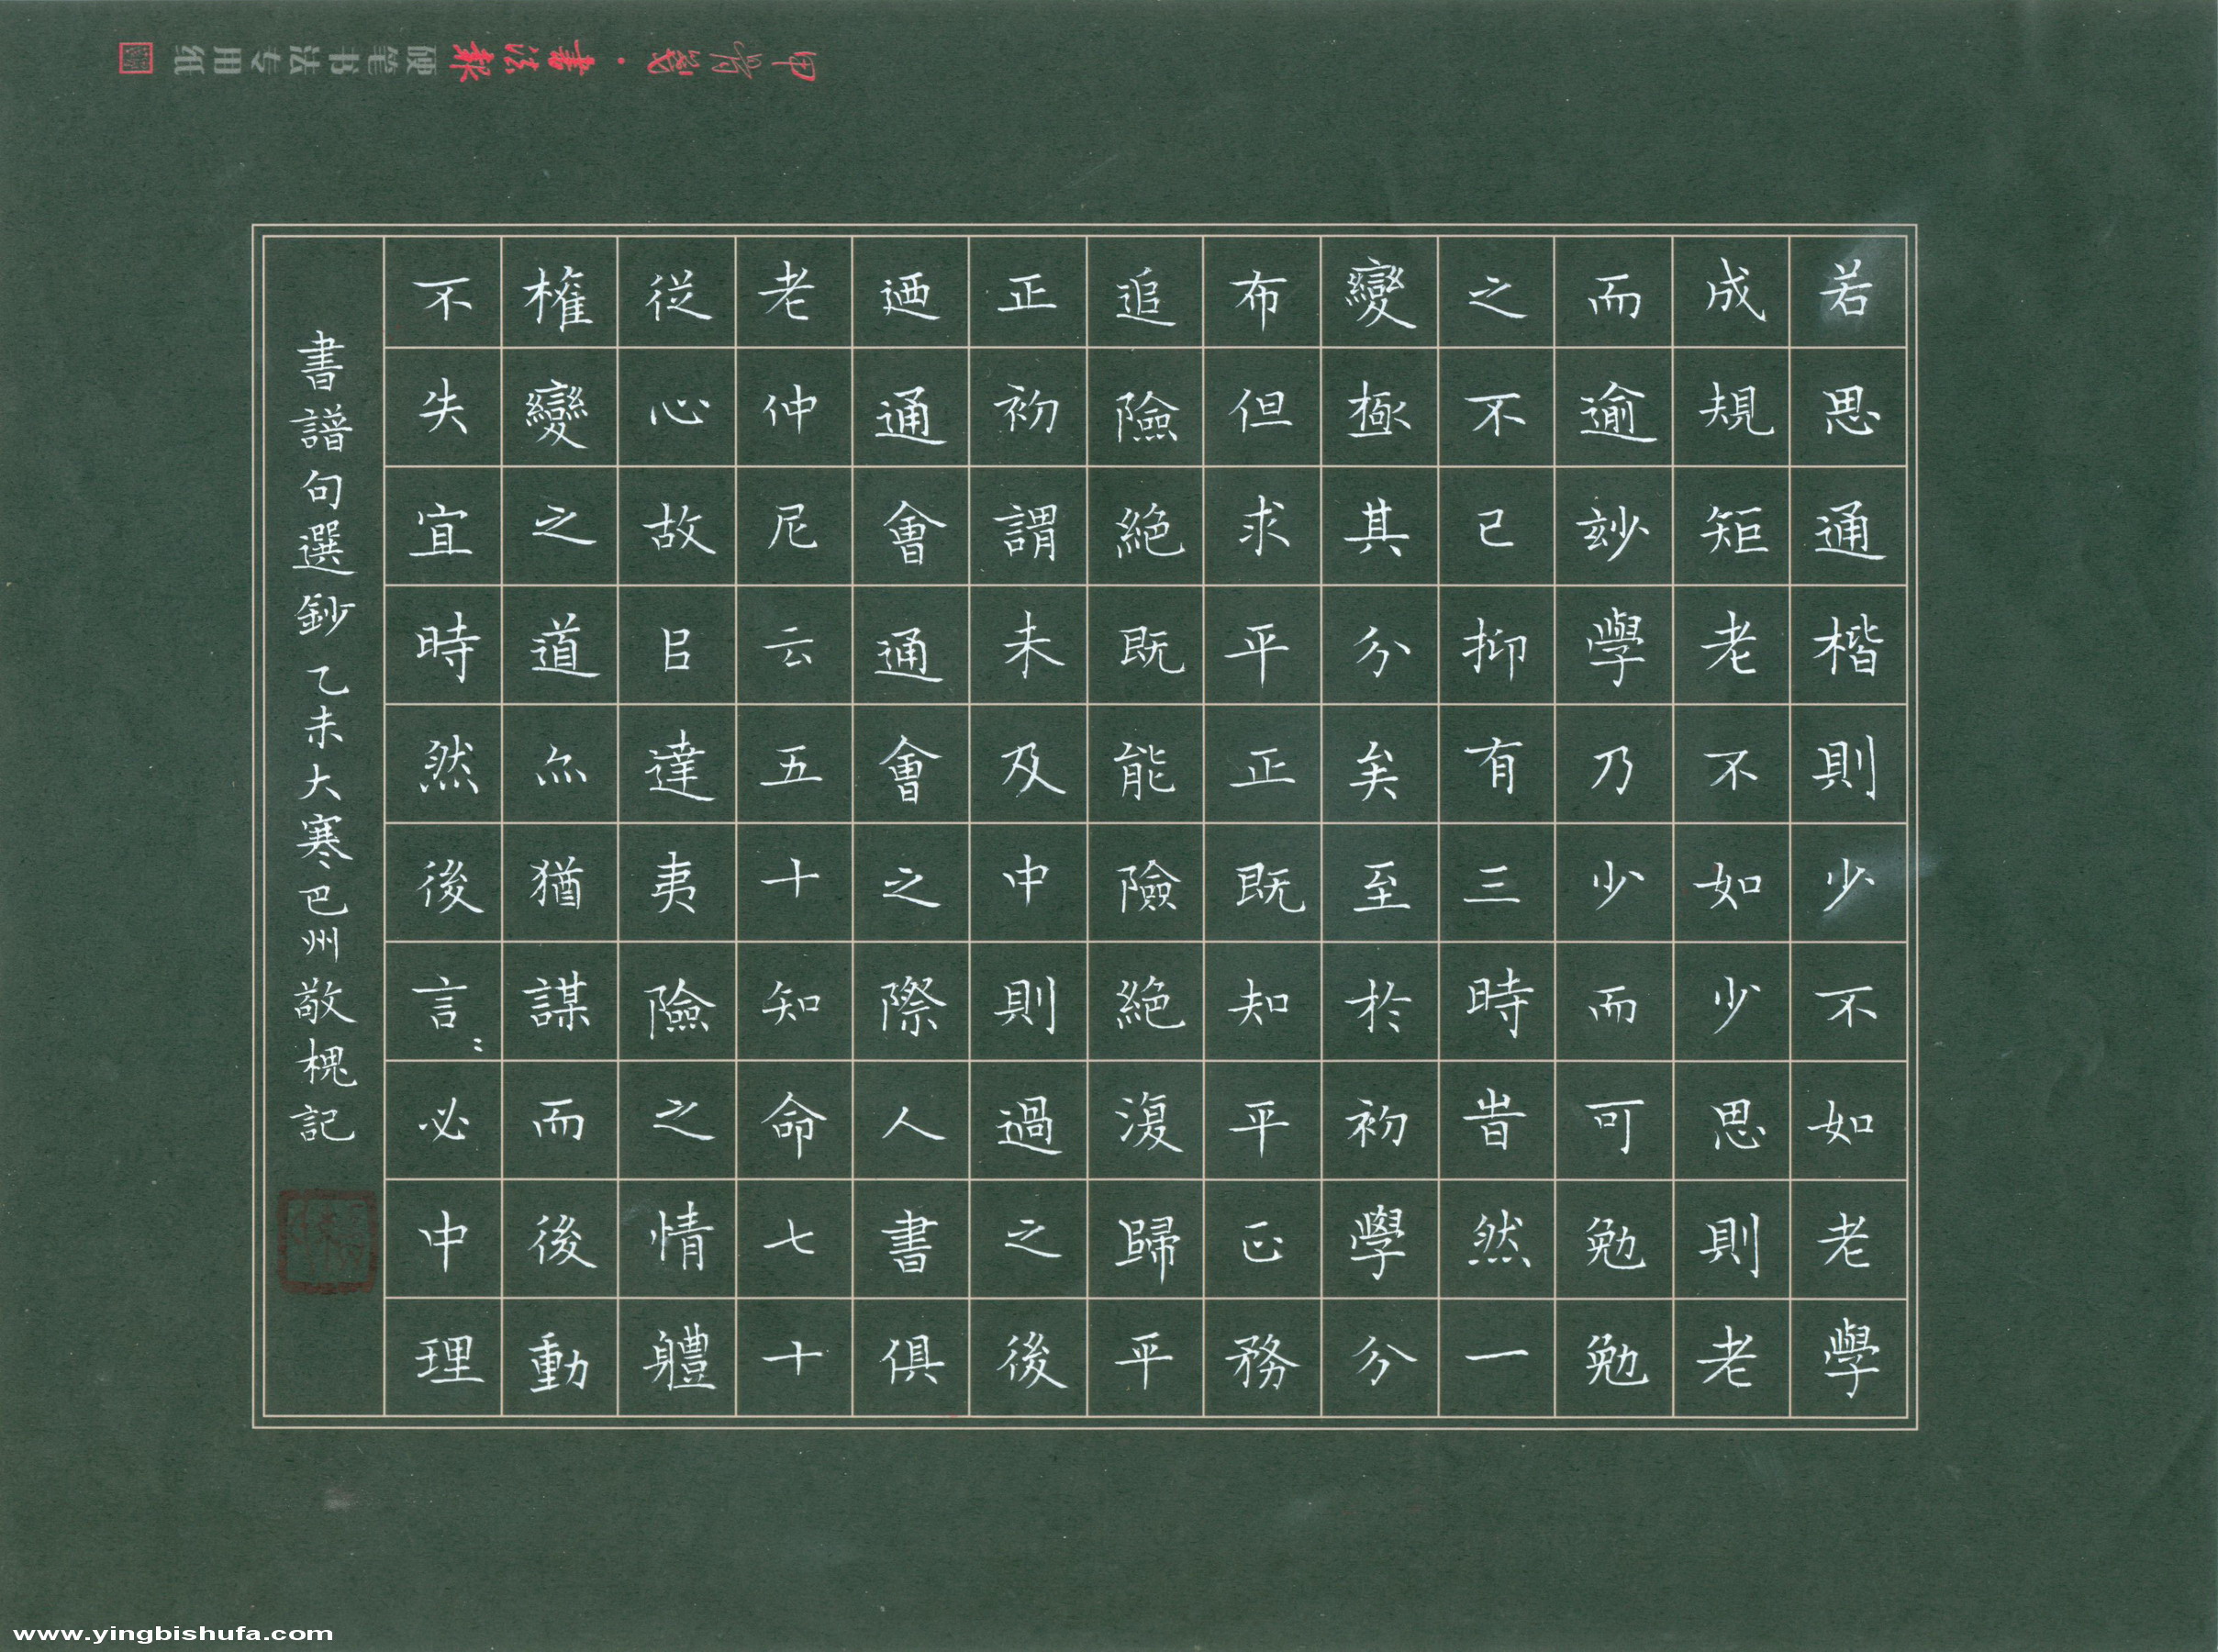 甲骨鼓·書法報硬笔书法专用纸
若思通楷則少不如老學
成規矩老不如少思則老
而逾玅學乃少而可勉勉
之不已抑有三時旹然一
變極其分矣至於初學分
布但求平正既知平正務
追險絕既能險絕復歸平
正初謂未及中則過之後
迺通會通會之際人書俱
老仲尼云五十知命七十
從心故㠯達夷險之情軆
權變之道亦猶謀而後動
不失宜時然後言〻必中理
書譜句選鈔乙未大寒巴州敬槐記
www.yingbishufa.com